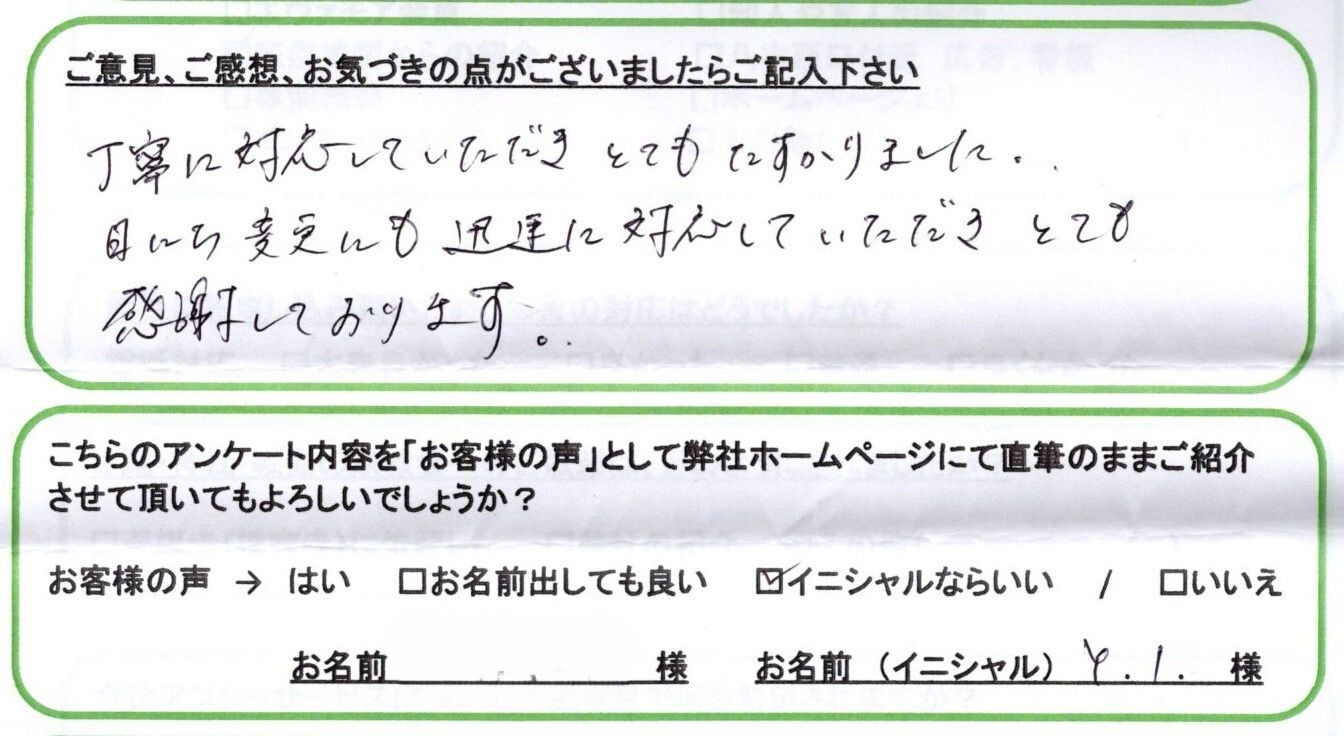 ご意見、ご感想、お気づきの点がございましたらご記入下さい
丁寧に対応していただき とてもたすかりました。
日にち変更にも迅速に対応していただき とても
感謝しております。
こちらのアンケート内容を「お客様の声」として弊社ホームページにて直筆のままご紹介
させて頂いてもよろしいでしょうか？
お客様の声 → はい □お名前出しても良い ☑イニシャルならいい / □いいえ
お名前 様 お名前（イニシャル） Y.I. 様